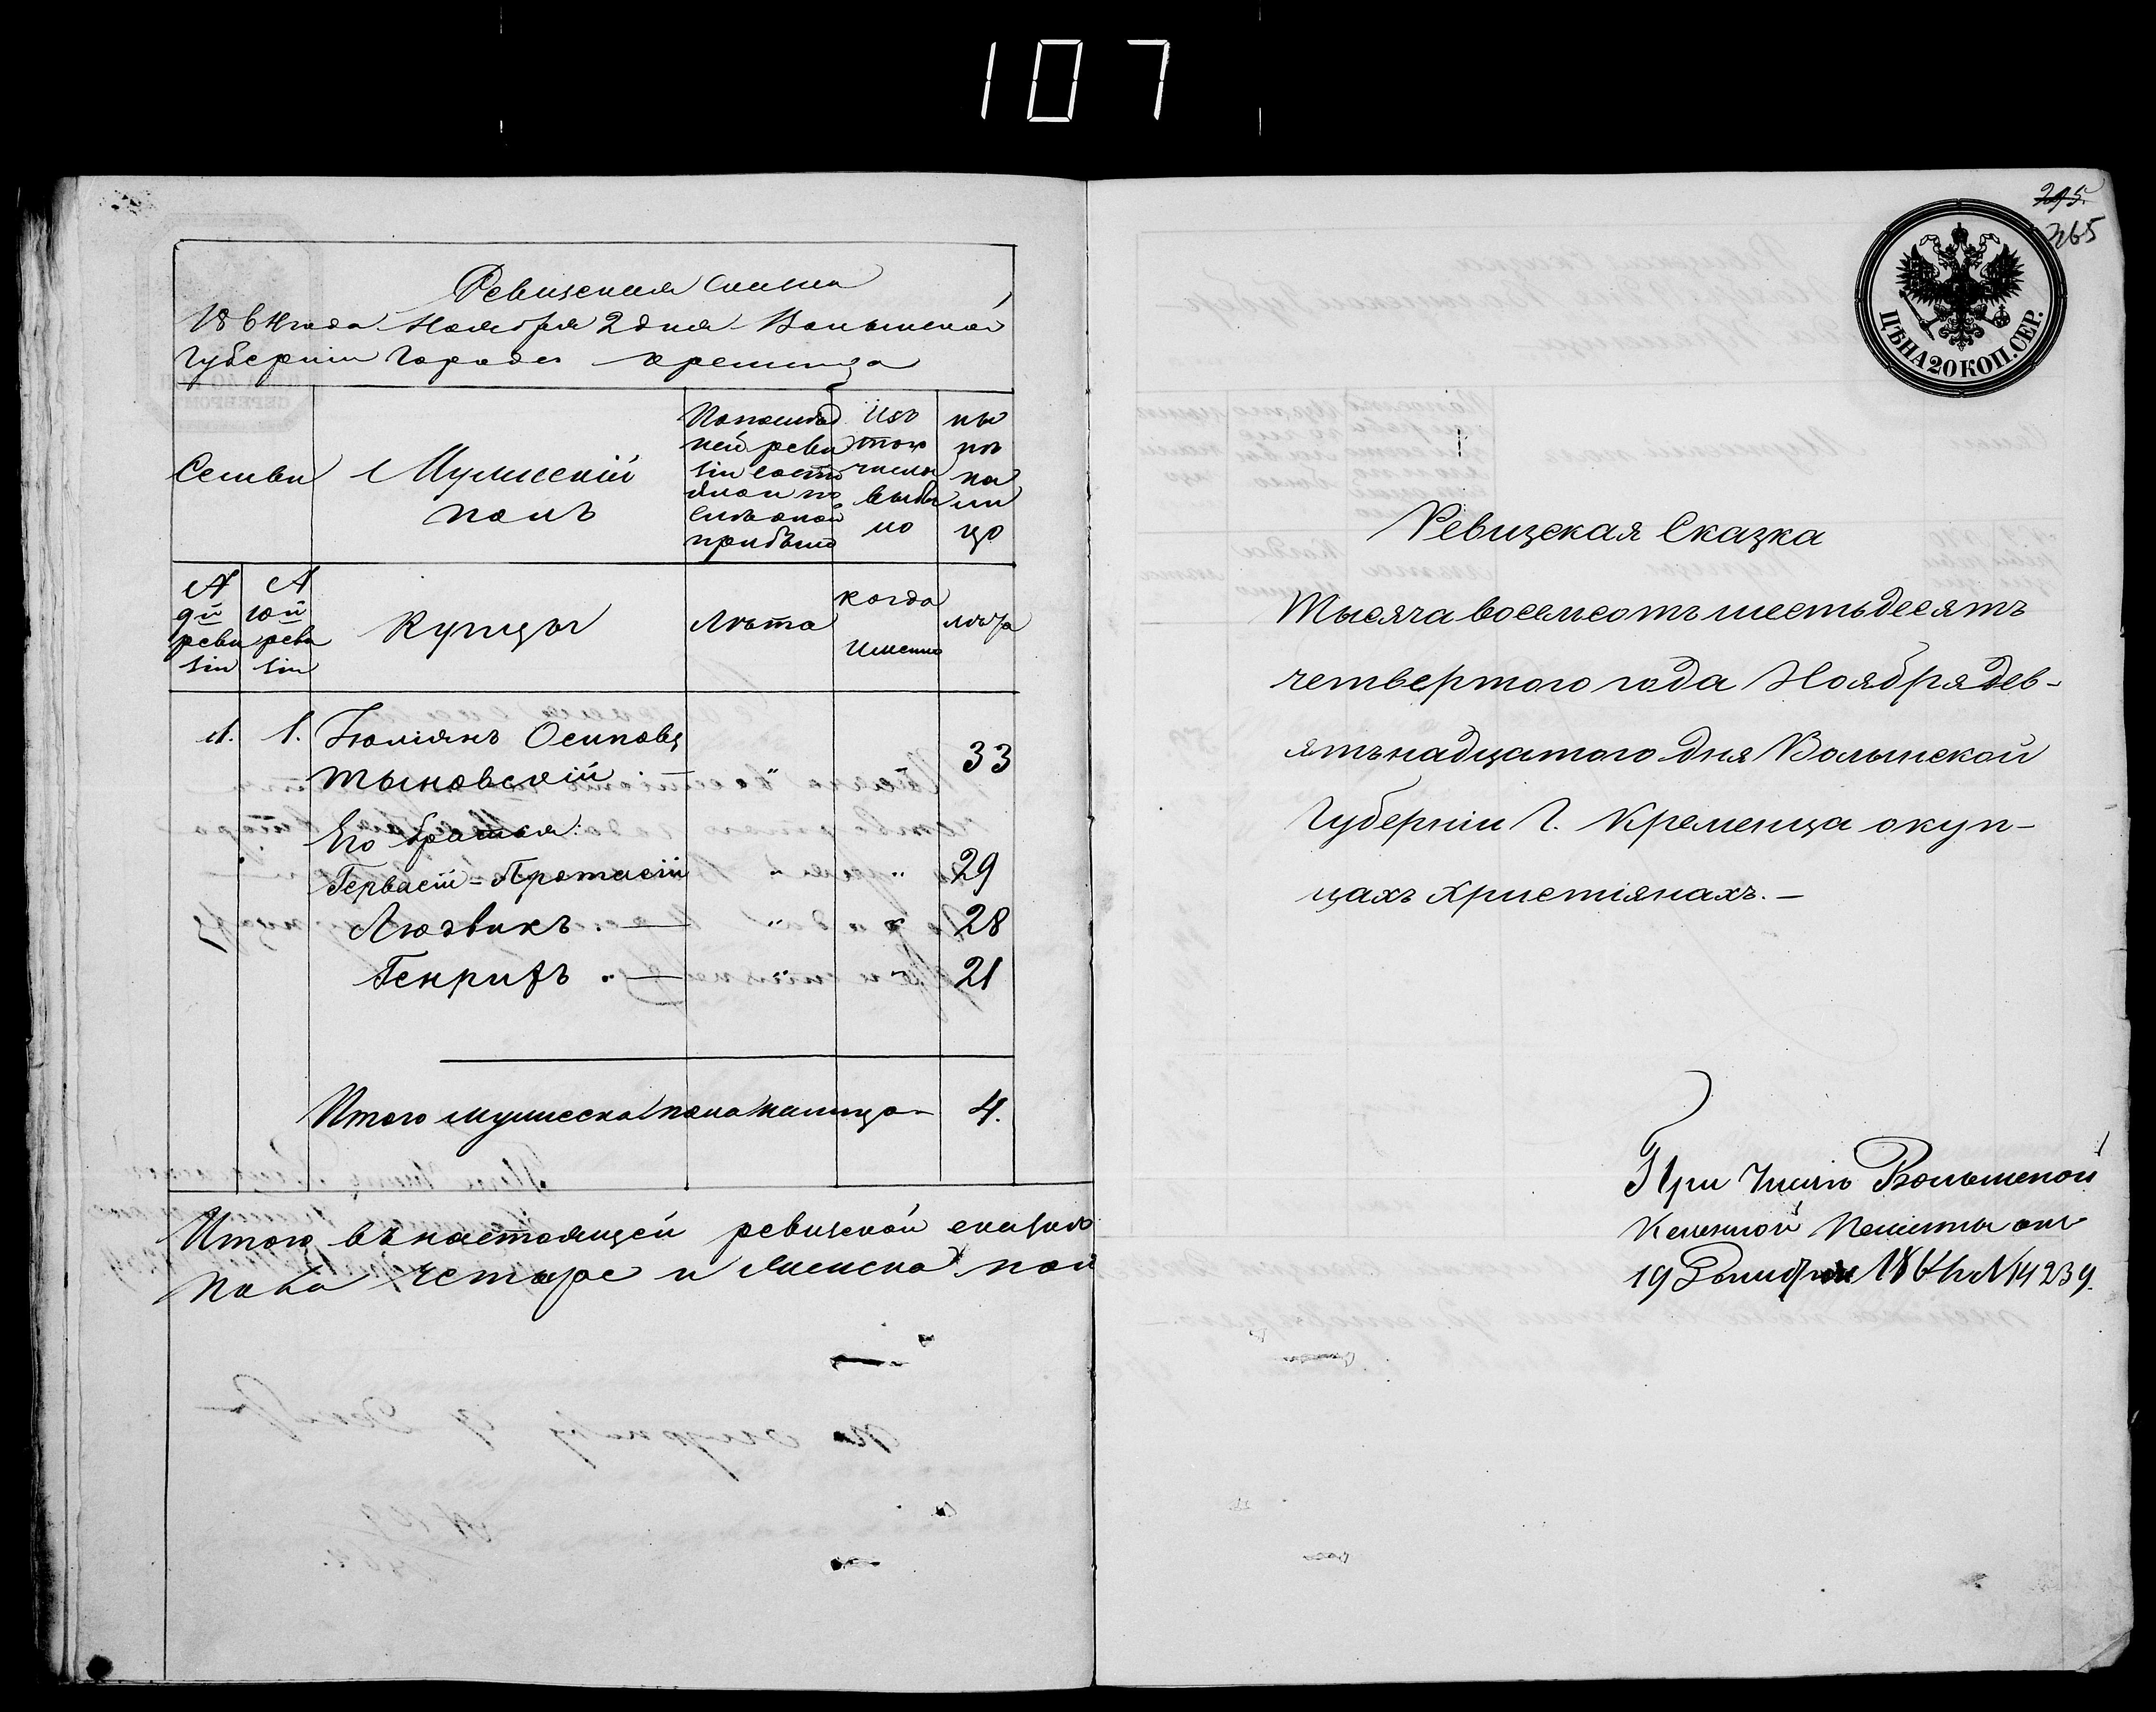 107
Ревизская Сказка
1864 года Ноября 2 дня Волынской
Губернiи города Кременца
Семьи
Мужескiй
полъ
По послѣд
ней реви
зiи состо
прибыло
Изъ
того
числа
выбы
ло
ны
нѣ
на
ли
цо
№
9й
реви
зiи
№
10й
реви
зiи
Купцы
Лѣта
когда
именно
лѣта
1. 1. Юлiянъ Осиповъ 33
Тыновскiй
Его братья:
Гервасiй=Протасiй " 29
Людвикъ . — " " 28
Генрихъ " — " " 21
Итого мужеска пола налицо 4.
Итого въ настоящей ревизской сказкѣ
пола четыре и женска пол
295.
265
ЦѢНА 20 КОП. СЕР.
Ревизская Сказка
Тысяча восемьсотъ шестьдесятъ
четвертого года Ноября дев-
ятьнадцатого дня Волынской
Губернiи Г. Кременца о куп-
цахъ христiянахъ.—
При Указѣ Волынской
Казенной Палаты отъ
19 1864 г. № 14239.